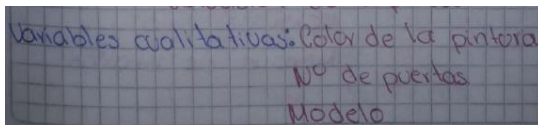 Variables cualitativas: Color de la pintura
Nº de puertas
Modelo